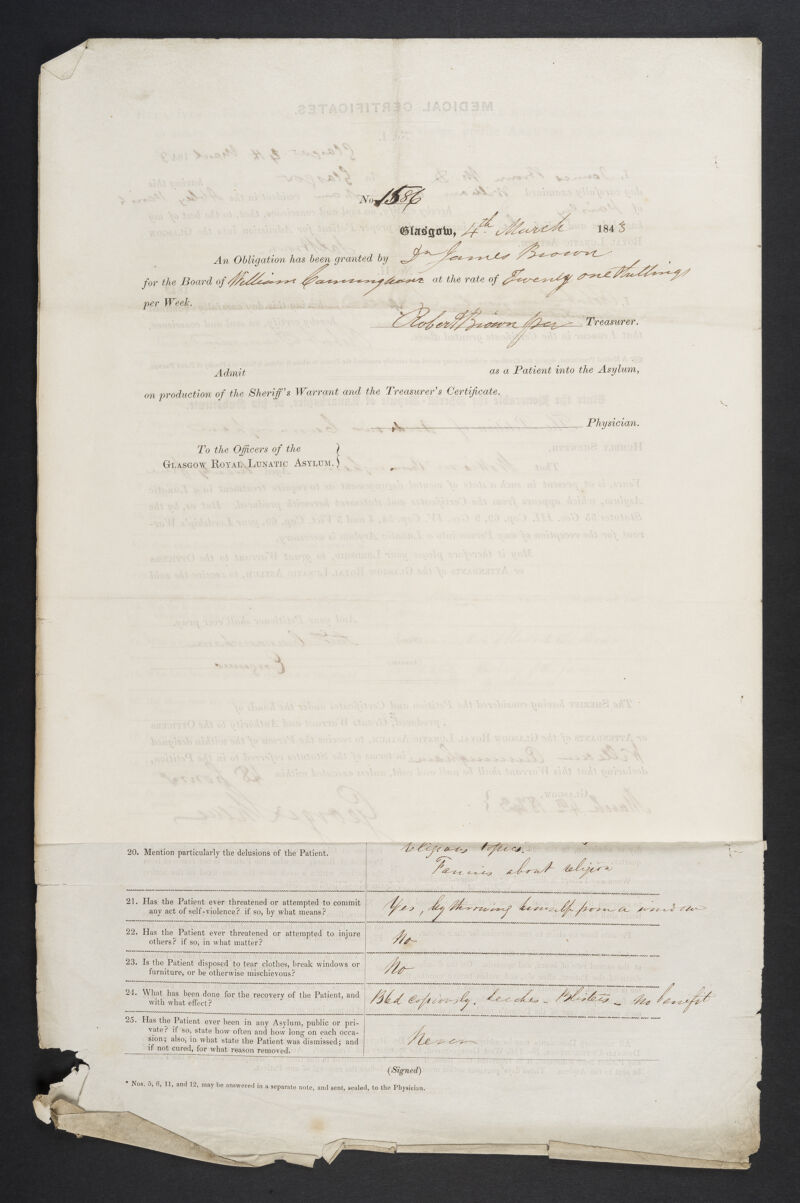 No. 1586
Glasgow, 4th March 1843
An Obligation has been granted by Dr James Brown
for the Board of William Cunninghame at the rate of Twenty one Shillings
per Week.
Robert Brown Treasurer.
Admit as a Patient into the Asylum,
on production of the Sheriff's Warrant and the Treasurer's Certificate.
Physician.
To the Officers of the
Glasgow Royal Lunatic Asylum.
religious topics.
20. Mention particularly the delusions of the Patient.
Fancies about religion
21. Has the Patient ever threatened or attempted to commit
any act of self-violence? if so, by what means?
Yes, by throwing himself from a window
22. Has the Patient ever threatened or attempted to injure
others? if so, in what matter?
No
23. Is the Patient disposed to tear clothes, break windows or
furniture, or be otherwise mischievous?
No
24. What has been done for the recovery of the Patient, and
with what effect?
Bled copiously. Leeches - Blisters - No benefit
25. Has the Patient ever been in any Asylum, public or pri-
vate? if so, state how often and how long on each occa-
sion; also, in what state the Patient was dismissed; and
if not cured, for what reason removed.
Never
(Signed)
* Nos. 5, 6, 11, and 12, may be answered in a separate note, and sent, sealed, to the Physician.